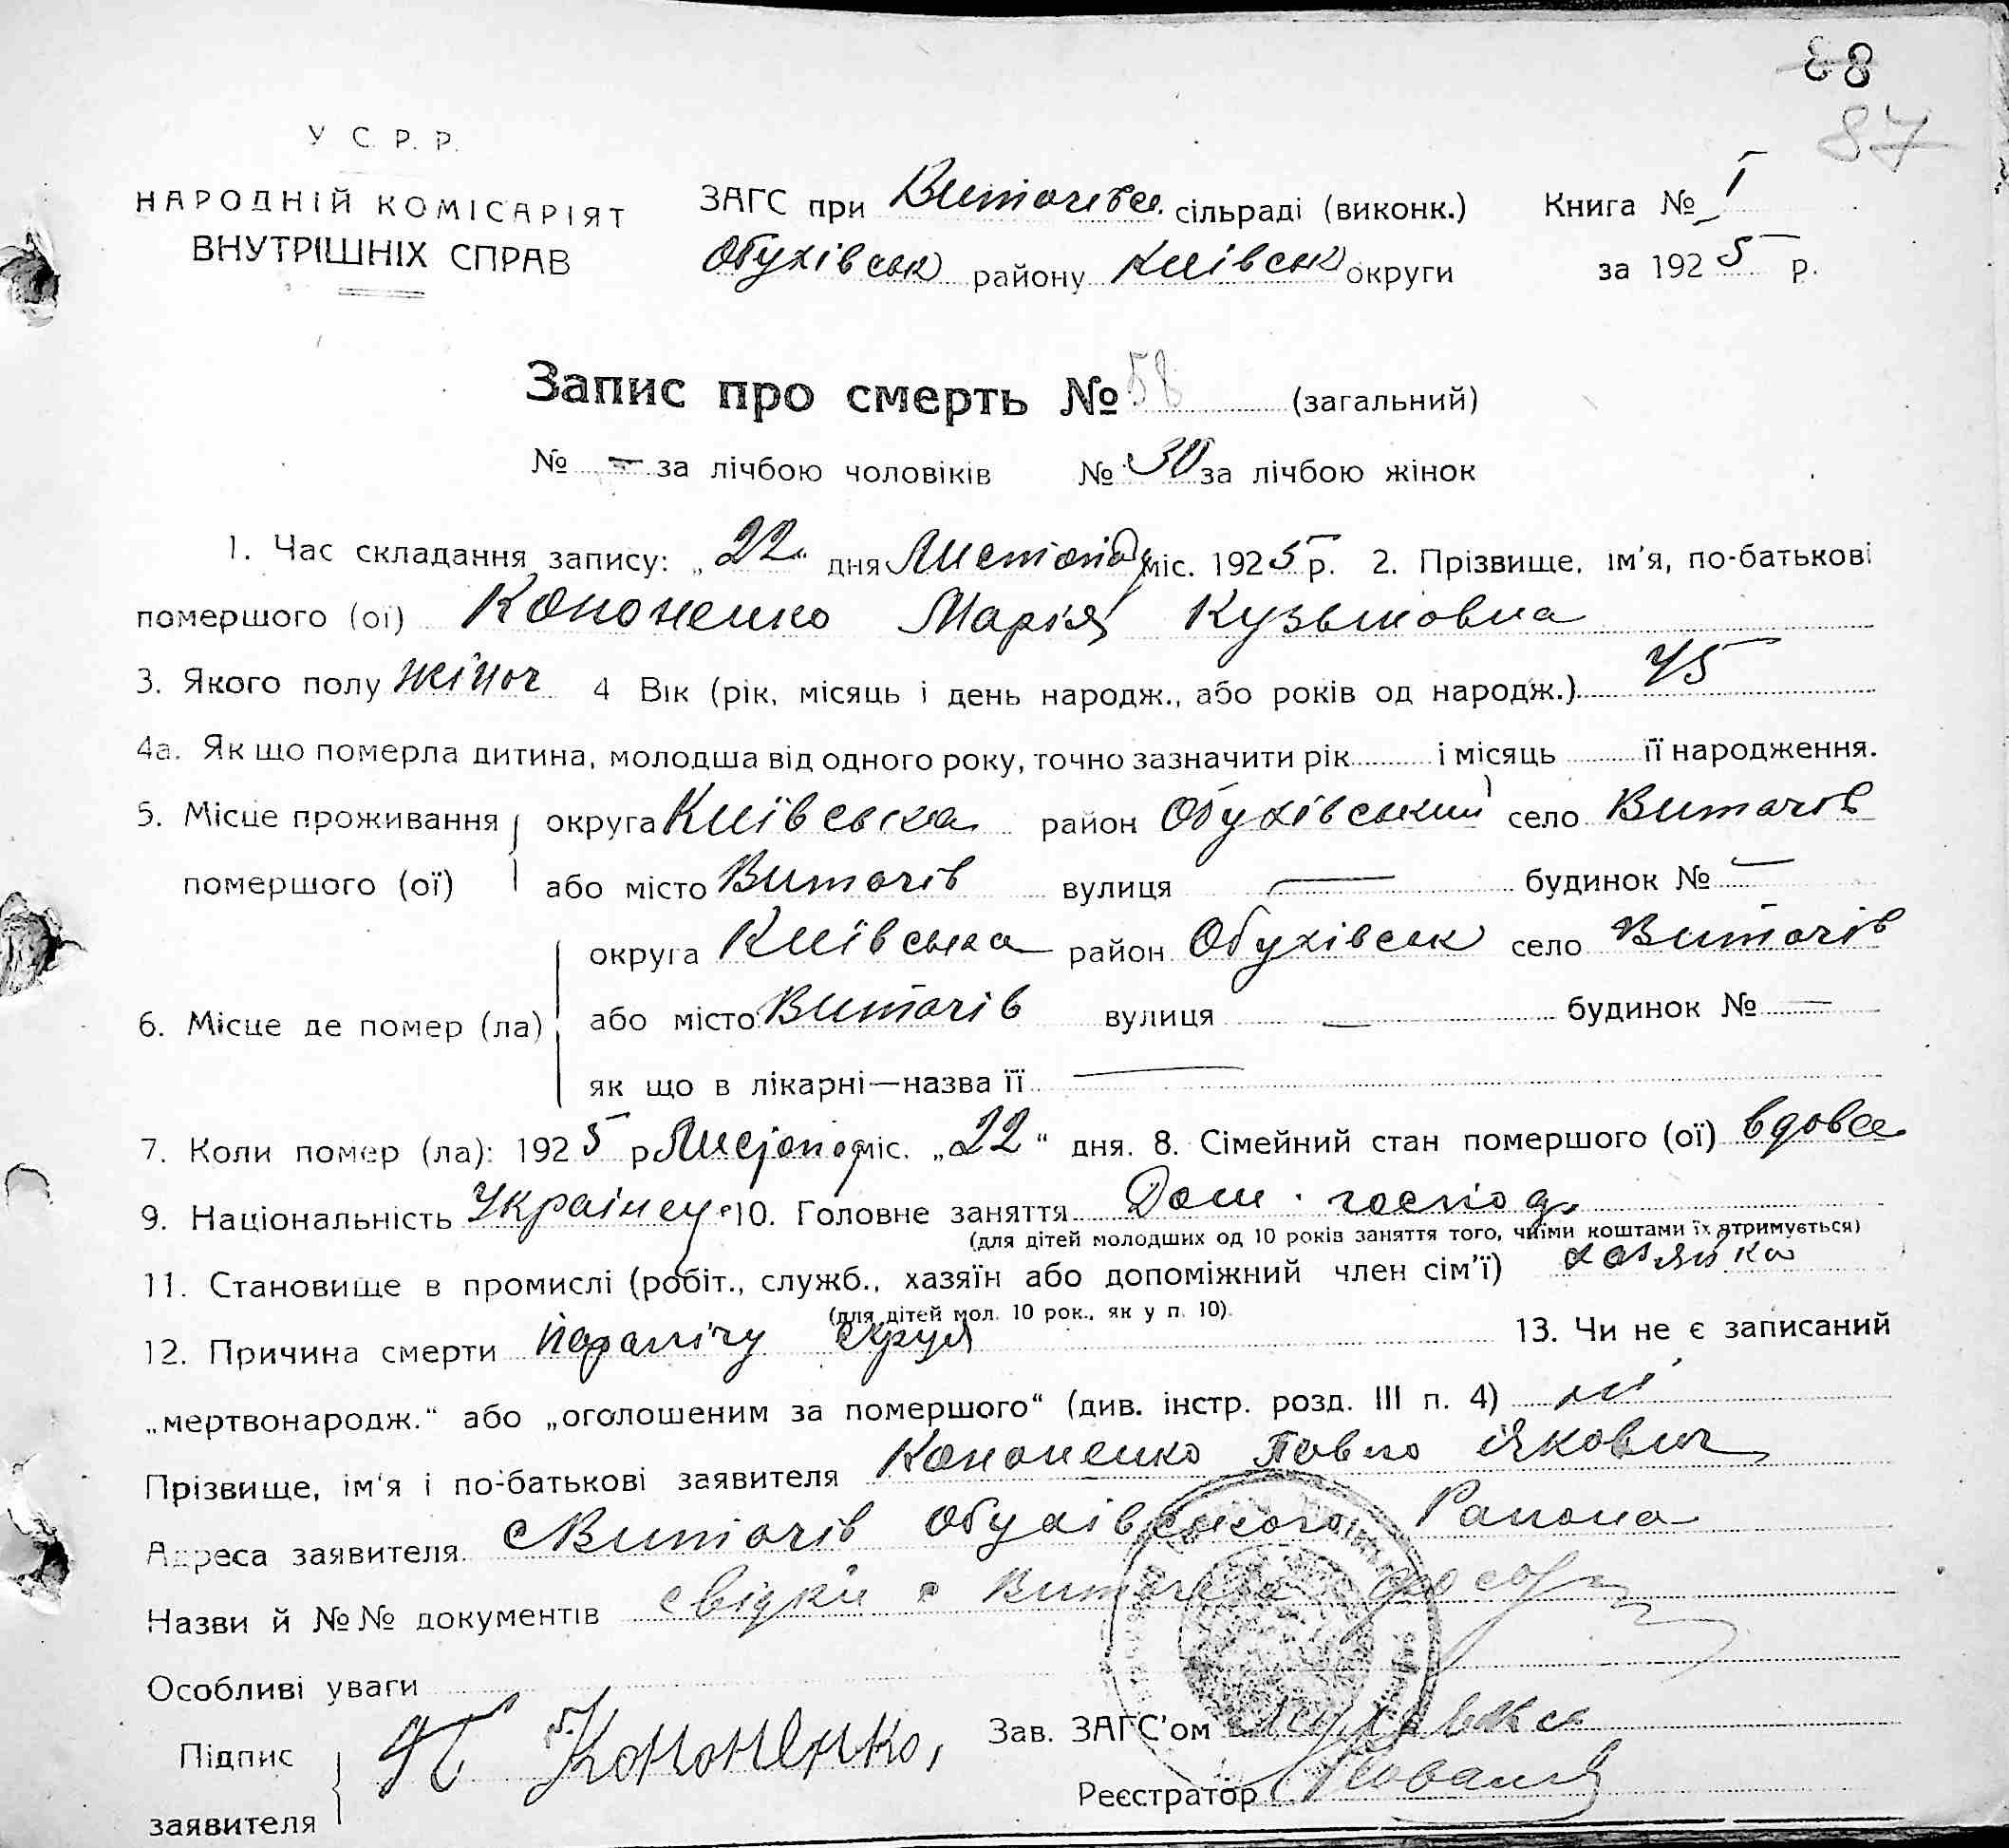 88
87
У С. Р. Р.
НАРОДНІЙ КОМІСАРІЯТ
ВНУТРІШНІХ СПРАВ
ЗАГС при Витачівск. сільраді (виконк.) Книга № I
Обухівськ району Київськ округи за 1925 р.
Запис про смерть № 58 (загальний)
№ — за лічбою чоловіків № 30 за лічбою жінок
1. Час складання запису: „22“ дня Листопад міс. 1925 р. 2. Прізвище, ім'я, по-батькові
помершого (ої) Кононенко Марія Кузьмовна
3. Якого полу жіноч 4 Вік (рік, місяць і день народж., або років од народж.) 45
4а. Як що померла дитина, молодша від одного року, точно зазначити рік і місяць її народження.
5. Місце проживання округа Київська район Обухівський село Витачів
помершого (ої) або місто Витачів вулиця — будинок № —
округа Київська район Обухівськ село Витачів
6. Місце де помер (ла) або місто Витачів вулиця — будинок № —
як що в лікарні—назва її —
7. Коли помер (ла): 1925 р. Листопад міс. „22“ дня. 8. Сімейний стан помершого (ої) вдова
9. Національність 10. Головне заняття Дом. господ.
(для дітей молодших од 10 років заняття того, чиїми коштами їх утримується)
11. Становище в промислі (робіт., служб., хазяїн або допоміжний член сім'ї) хазяйка
(для дітей мол. 10 рок., як у п. 10).
12. Причина смерти 13. Чи не є записаний
„мертвонародж.“ або „оголошеним за помершого“ (див. інстр. розд. III п. 4) ні
Прізвище, ім'я і по-батькові заявителя Кононенко Павло Якович
Адреса заявителя с Витачів Обухівського Району
Назви й №№ документів
Особливі уваги
Підпис П Кононенко, Зав. ЗАГС'ом
заявителя Реєстратор